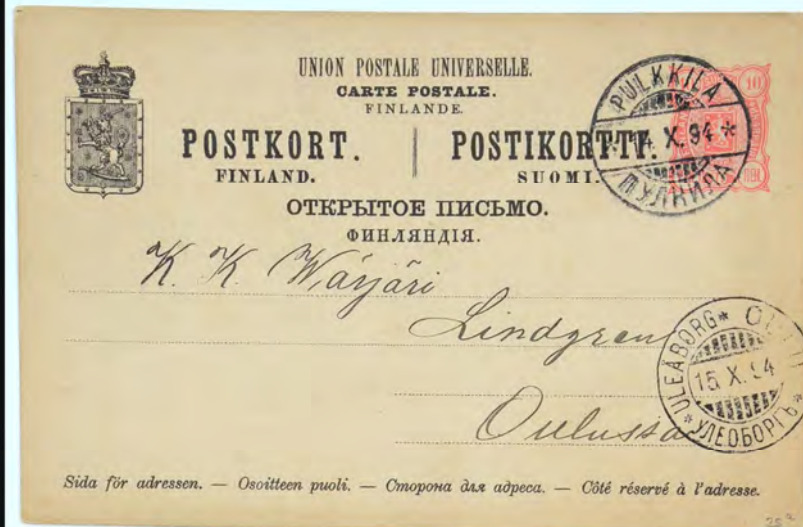 UNION POSTALE UNIVERSELLE.
CARTE POSTALE.
FINLANDE.
POSTKORT. POSTIKORTTI.
FINLAND. SUOMI.
ОТКРЫТОЕ ПИСЬМО.
ФИНЛЯНДІЯ.
10
PULKKILA
14 X. 94 *
ПУЛКИЛА
K. K. Wärjäri
Lindgren
Oulussa
* ULEÅBORG * OULU
15 X. 94
* УЛЕОБОРГЪ *
Sida för adressen. — Osoitteen puoli. — Сторона для адреса. — Côté réservé à l'adresse.